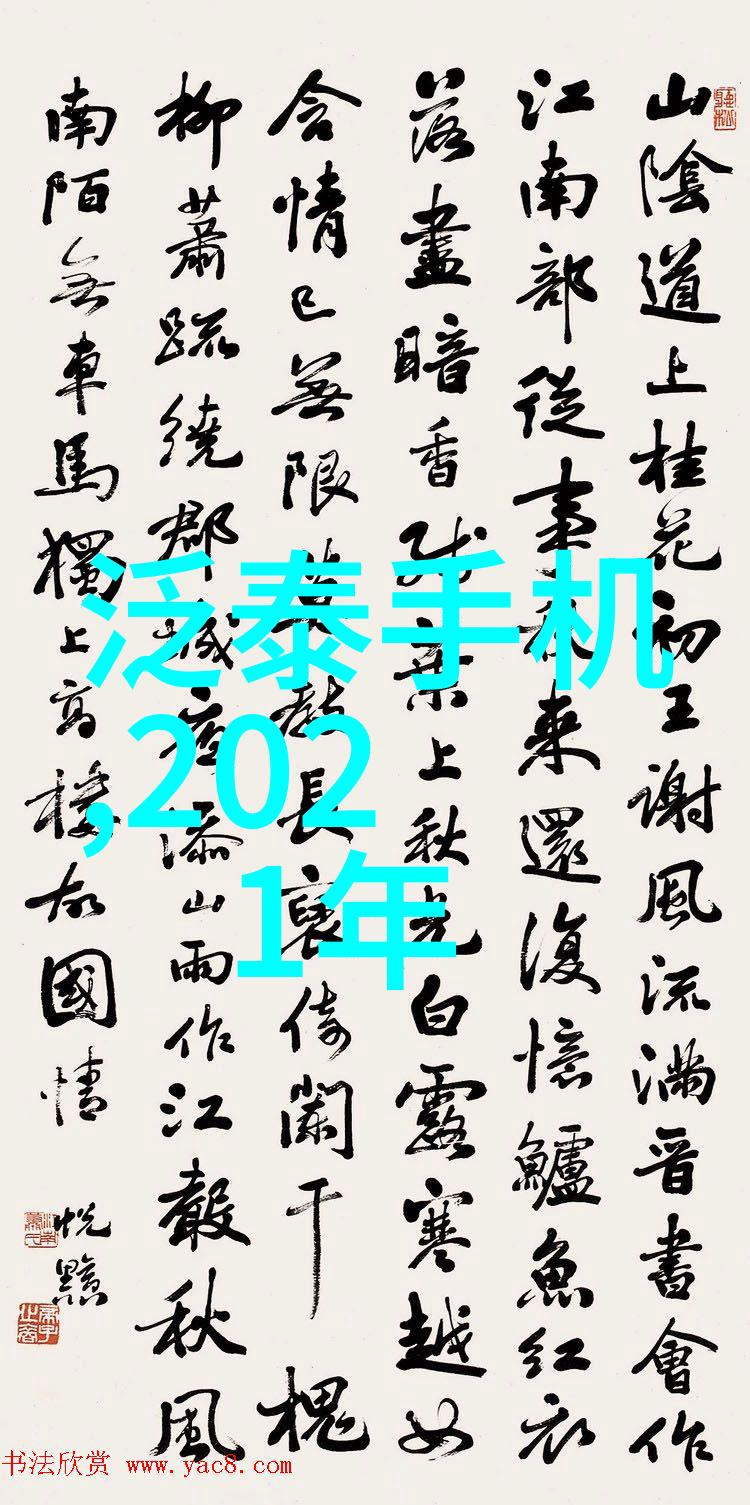 山陰道上桂花初王谢風流满晋書會作
江南部從事秋来還復憶鱸魚红衣
落盡暗香残葉上秋光白露寒越女
含情已無限莫教長袖倚闌干 槐
柳蕭踈繞郡城夜添山雨作江聲秋風
南陌無車馬獨上高樓故國情
泛泰手机
,202
1年
书法欣赏 www.yac8.com